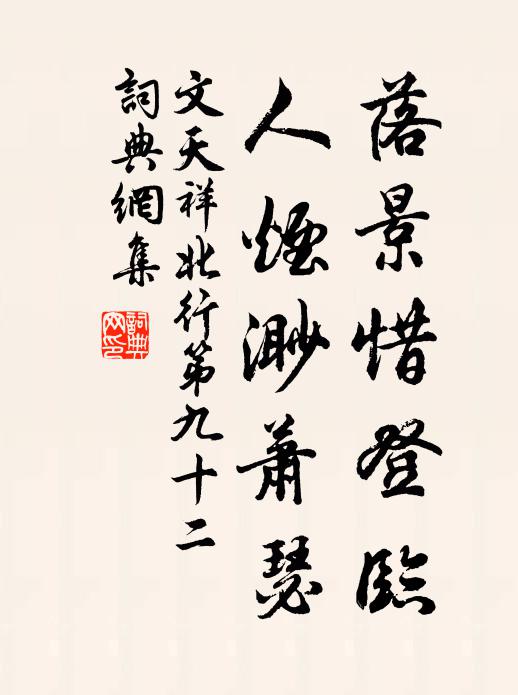 落景惜登臨
人煙渺蕭瑟
文天祥北行第九十二
詞典網集
詞典
网印